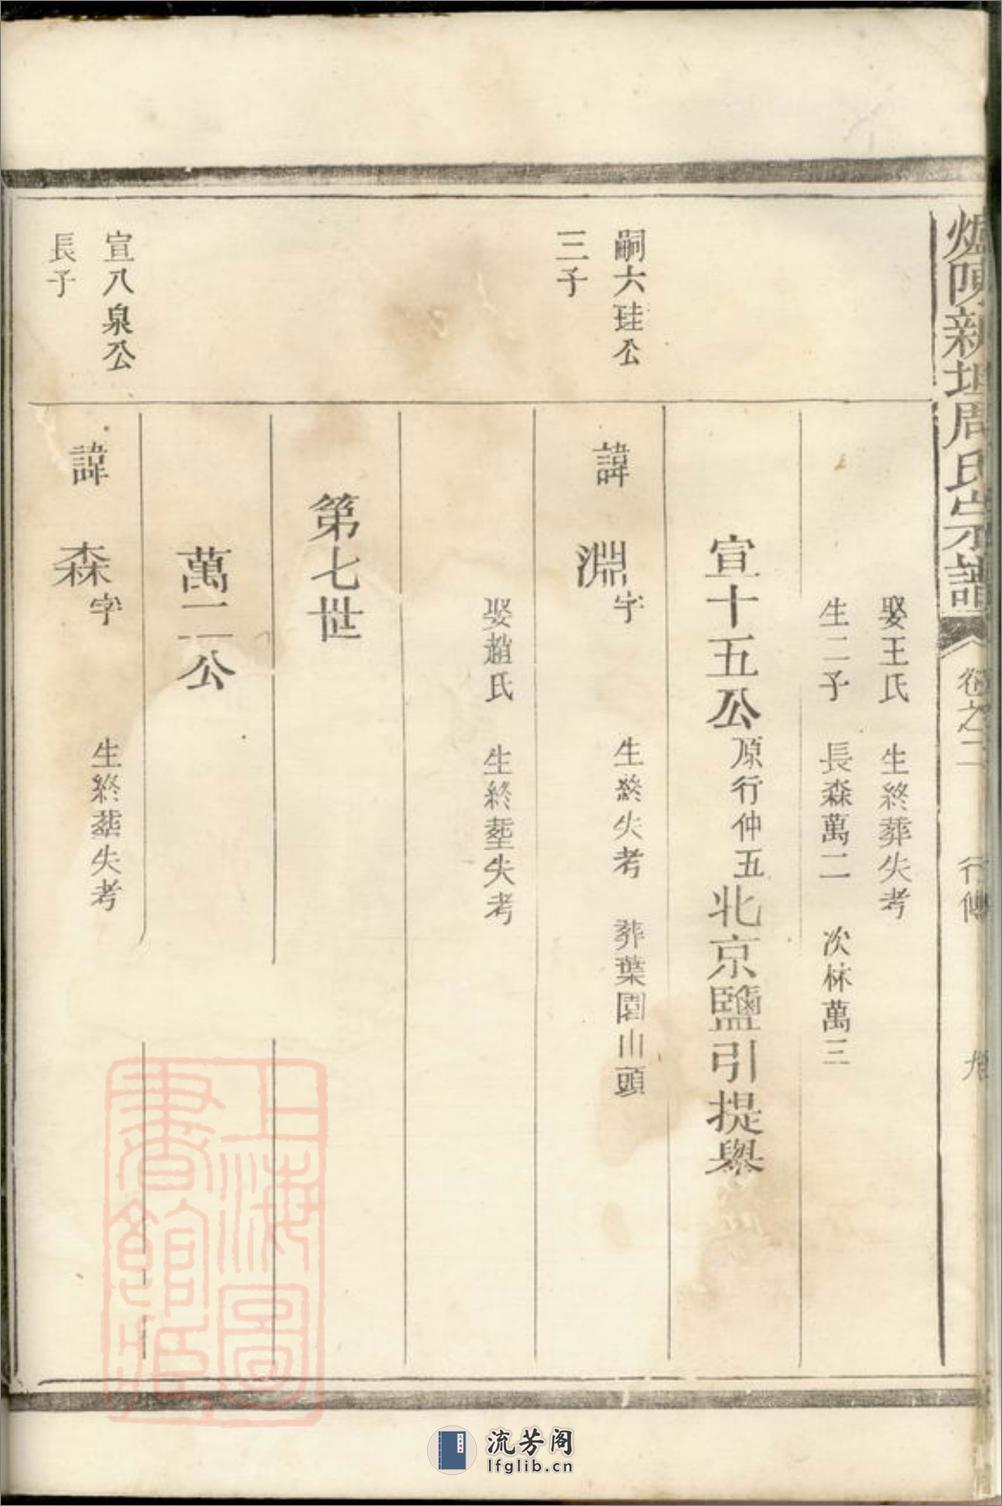 爐陳新埂周氏宗譜 卷之二 行傳 九
娶王氏 生終葬失考
生二子 長森萬二 次林萬三
宣十五公原行仲五北京鹽引提舉
嗣六珪公
三子
諱淵字 生終失考 葬葉園山頭
娶趙氏 生終塟失考
第七世
萬二公
宣八泉公
長子
諱森字 生終塟失考
上海圖書館藏
流芳阁
lfglib.cn